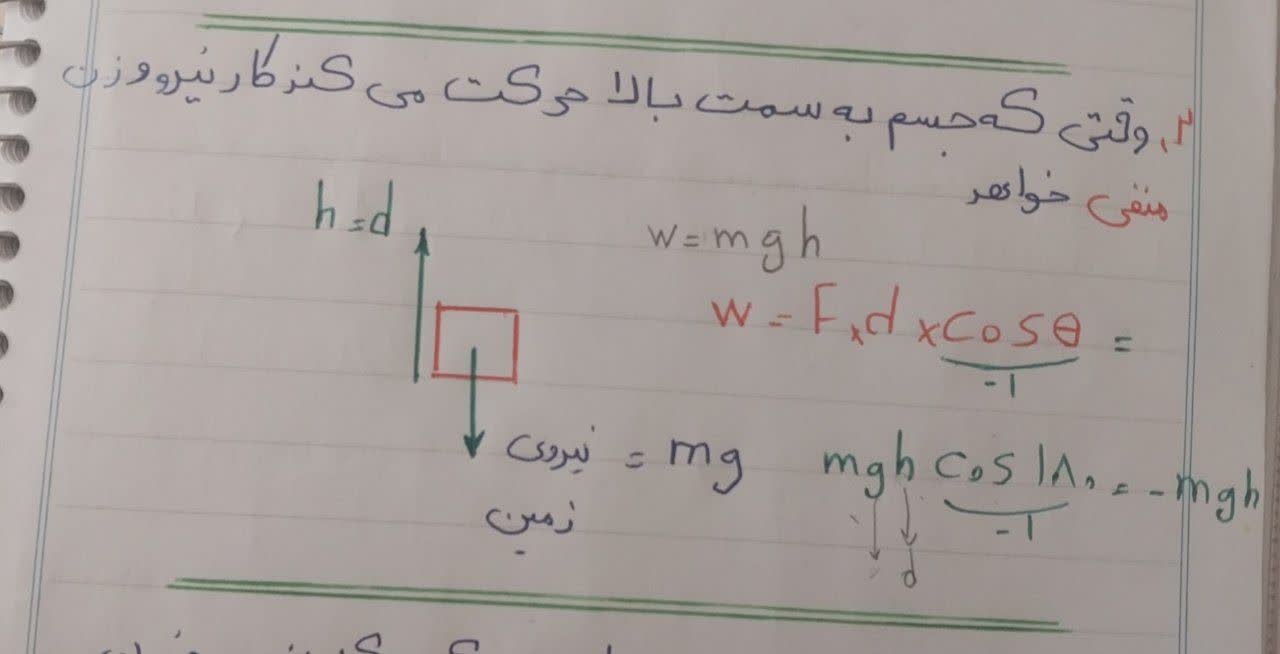 ۲. وقتی که جسم به سمت بالا حرکت می کند کار نیرو وزن
منفی خواهد
h = d
w = mgh
w = F x d x cos θ =
-1
نیروی = mg
زمین
mgh cos ۱۸۰ = - mgh
-1
d